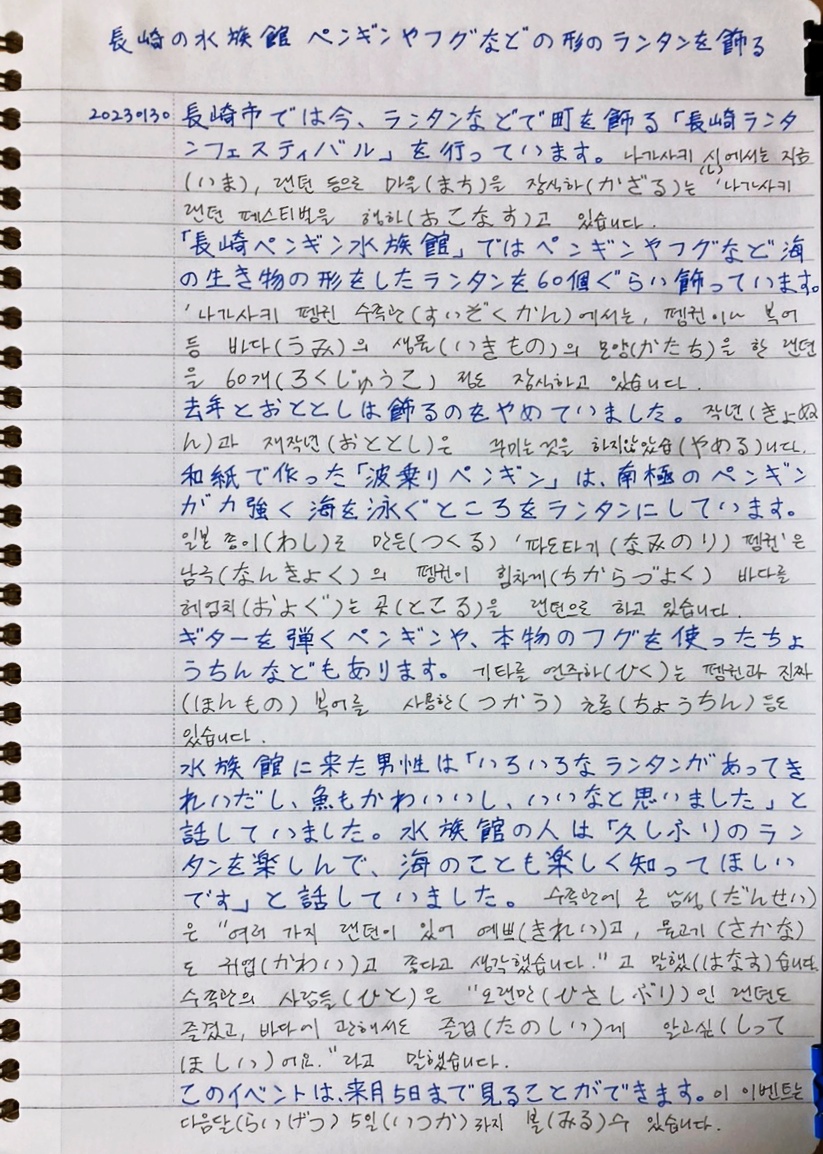 長崎の水族館 ペンギンやフグなどの形のランタンを飾る
20230130 長崎市では今、ランタンなどで町を飾る「長崎ランタ
ンフェスティバル」を行っています。나가사키 시(し)에서는 지금
(いま), 랜턴 등으로 마을(まち)을 장식하(かざる)는 '나가사키
랜턴 페스티벌을 행하(おこなす)고 있습니다.
「長崎ペンギン水族館」ではペンギンやフグなど海
の生き物の形をしたランタンを60個ぐらい飾っています。
'나가사키 펭귄 수족관(すいぞくかん)에서는, 펭귄이나 복어
등 바다(うみ)의 생물(いきもの)의 모양(かたち)을 한 랜턴
을 60개(ろくじゅうこ) 정도 장식하고 있습니다.
去年とおととしは飾るのをやめていました。작년(きょぬ
ん)과 재작년(おととし)은 꾸미는것을 하지않았습(やめる)니다.
和紙で作った「波乗りペンギン」は、南極のペンギン
が力強く海を泳ぐところをランタンにしています。
일본 종이(わし)로 만든(つくる) '파도타기(なみのり) 펭귄'은
남극(なんきょく)의 펭귄이 힘차게(ちからづよく) 바다를
헤엄치(およぐ)는 곳(ところ)을 랜턴으로 하고 있습니다.
ギターを弾くペンギンや、本物のフグを使ったちょ
うちんなどもあります。기타를 연주하(ひく)는 펭귄과 진짜
(ほんもの) 복어를 사용한(つかう) 초롱(ちょうちん) 등도
있습니다.
水族館に来た男性は「いろいろなランタンがあってき
れいだし、魚もかわいいし、いいなと思いました」と
話していました。水族館の人は「久しぶりのラン
タンを楽しんで、海のことも楽しく知ってほしい
です」と話していました。수족관에 온 남성(だんせい)
은 "여러 가지 랜턴이 있어 예쁘(きれい)고, 물고기(さかな)
도 귀엽(かわい)고 좋다고 생각했습니다."고 말했(はなす)습니다.
수족관의 사람들(ひと)은 "오랜만(ひさしぶり)인 랜턴도
즐겼고, 바다에 관해서도 즐겁(たのしい)게 알고싶(しって
ほしい)어요."라고 말했습니다.
このイベントは、来月5日まで見ることができます。이 이벤트는
다음달(らいげつ) 5일(いつか)까지 볼(みる)수 있습니다.